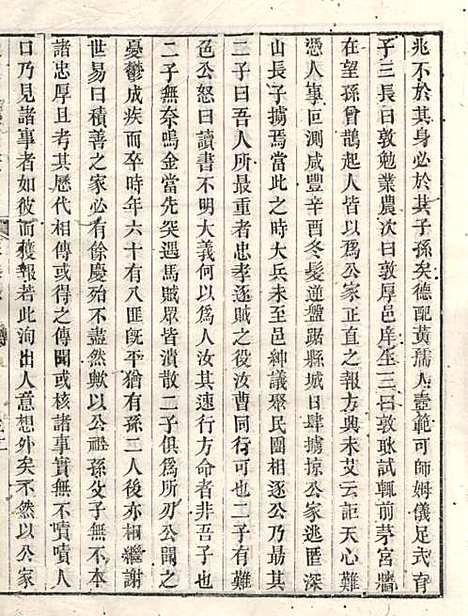 兆不於其身必於其子孫矣德配黃孺人壼範可師姆儀足式育
子三長曰敦勉業農次曰敦厚邑庠生三曰敦詠試輒前茅宮牆
在望孫曾鵲起人皆以爲公家正直之報方興未艾云詎天心難
憑人事叵測咸豐辛酉冬髮逆盤踞縣城日肆擄掠公家逃匿深
山長子擄焉當此之時大兵未至邑紳議聚民團相抗公乃勗其
二子曰吾人所最者忠孝逐賊之役汝曹同行可也二子有難
色公怒曰讀書不明大義何以爲人汝其速行方爲非吾子也
二子無奈鳴金當先突遇馬賊眾皆潰散二子俱爲所刃公聞之
憂鬱成疾而卒時年六十有八匪旣平竟有孫二人後亦相繼謝
世易曰積善之家必有餘慶殆不盡然歟以公祖孫父子無不本
諸忠厚且考其歷代相傳或得之傳聞或核諸事實無不嘖嘖人
口乃見諸事者如彼而獲報若此洵出人意想外矣不然以公家